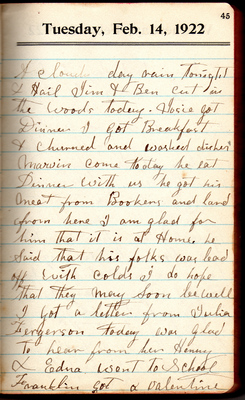 45
Tuesday, Feb. 14, 1922
A cloudy day rain tonight
& Hail Jim & Ben cut in
the woods today. Josie got
Dinner I got Breakfast
& churned and washed dishes
Marvin come today he eat
Dinner with us he got his
meat from Bookens and lard
from here I am glad for
him that it is at Home he
said that his folks was
off with colds I do hope
that they may soon be well
I got a letter from Julia
Fergerson today was glad
to hear from her Henry
& Edna went to School
Franklin got a valentine